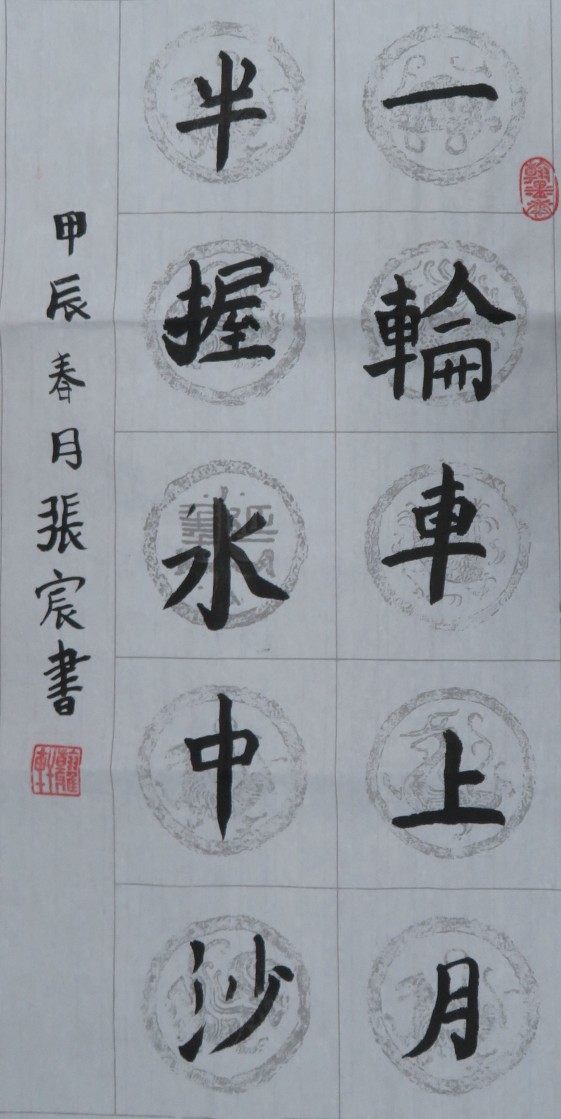 一輪車上月
半握水中沙
甲辰春月張宸書